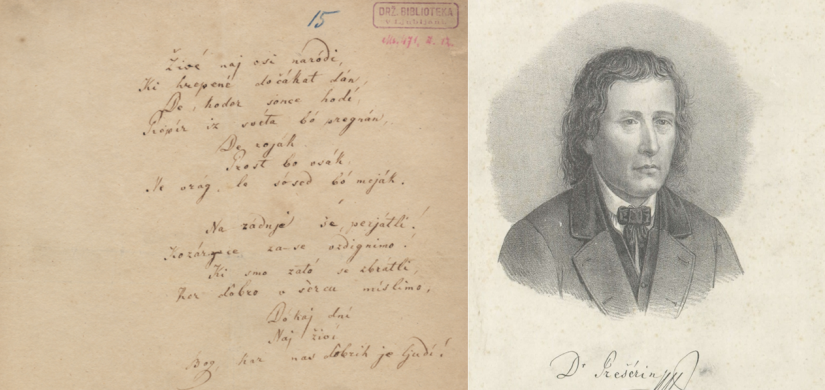 15
DRŽ. BIBLIOTEKA
v Ljubljani
Živé naj vsi naródi,
Ki hrepené dočákat dán,
De, kodor sonce hodi,
Prepír iz svéta bó pregnán,
De roják
Prost bo vsák,
Ne vrag, le sósed bó meják.
Na zadnje še, perjátli!
Kozárce za-se vzdignimo!
Ki smo zató se zbrátli,
Ker dobro v sercu mislimo,
Dókaj dni
Naj živí
Bog, kar nas dobrih je ljudí!
Dr Prešérin